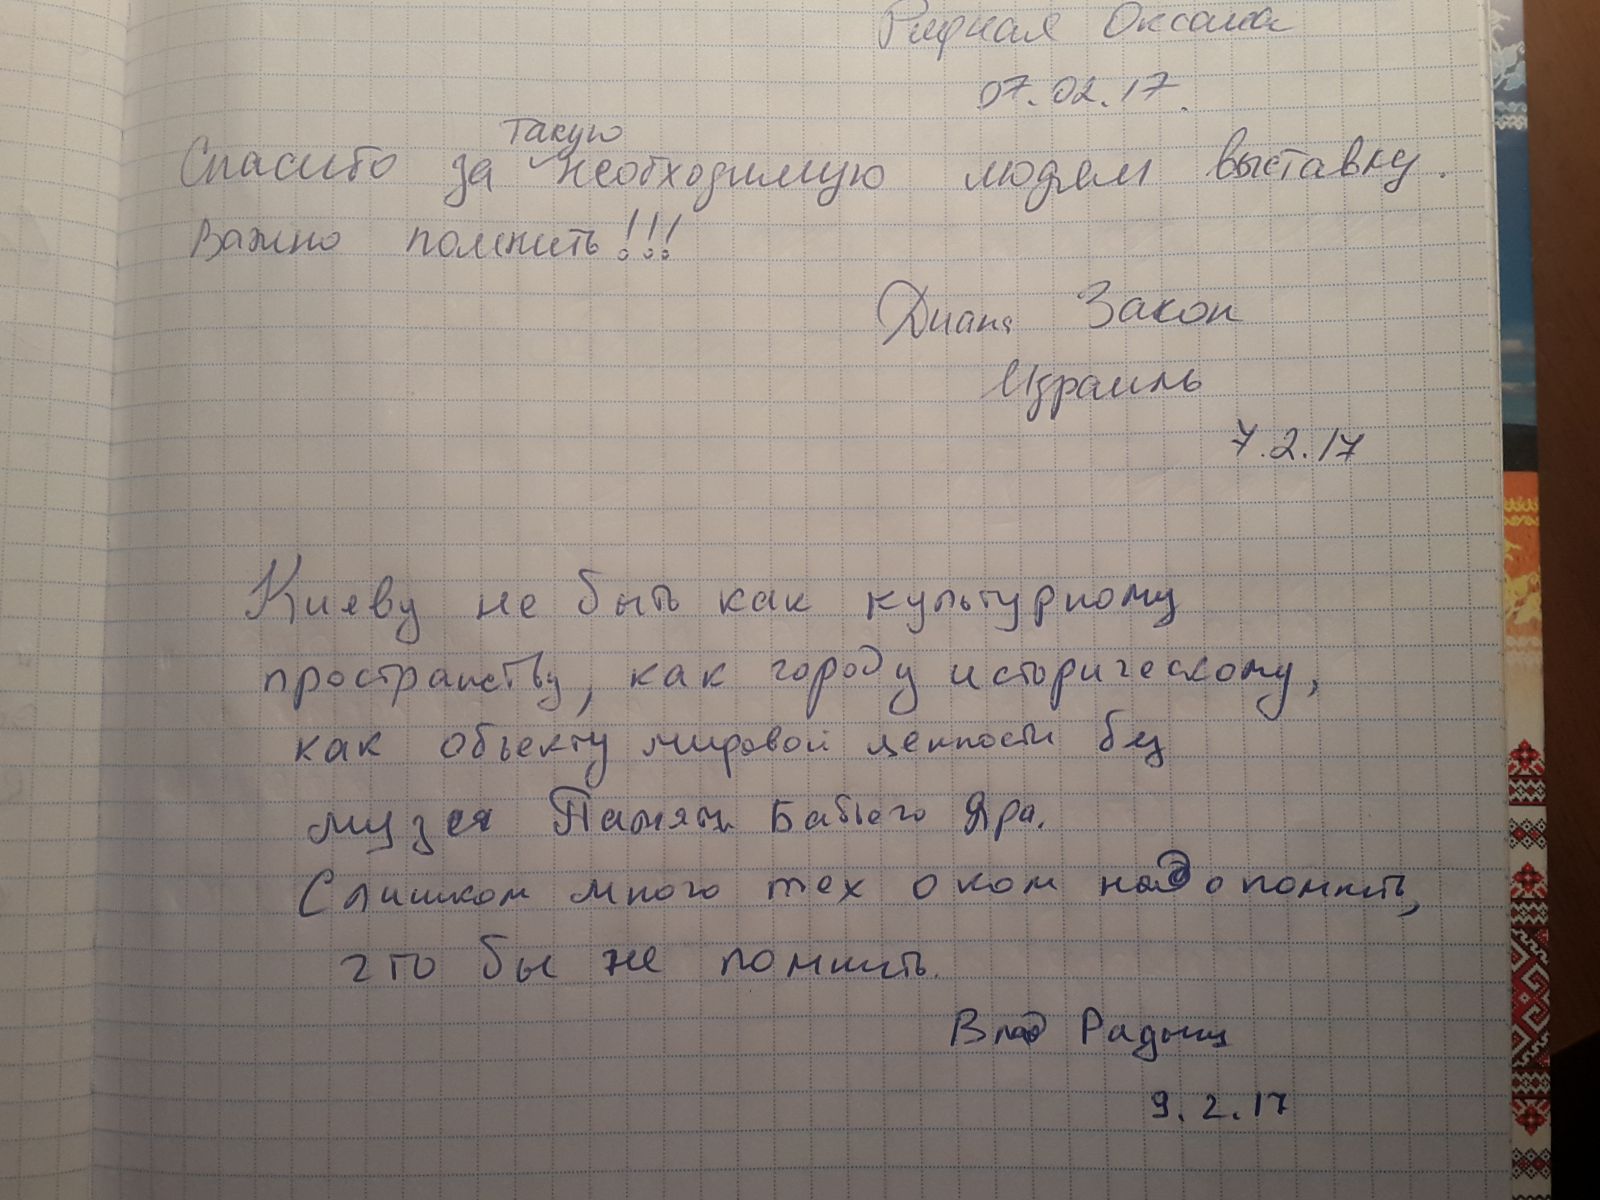 Ридная Оксана
07.02.17.
Спасибо за такую необходимую людям выставку.
Важно помнить!!!
Диана Закон
Израиль
7.2.17
Києву не быть как культурному
пространству, как городу историческому,
как объекту мировой ценности без
музея Памяти Бабьего Яра.
Слишком много тех о ком надо помнить,
что бы не помнить.
Влад
9.2.17